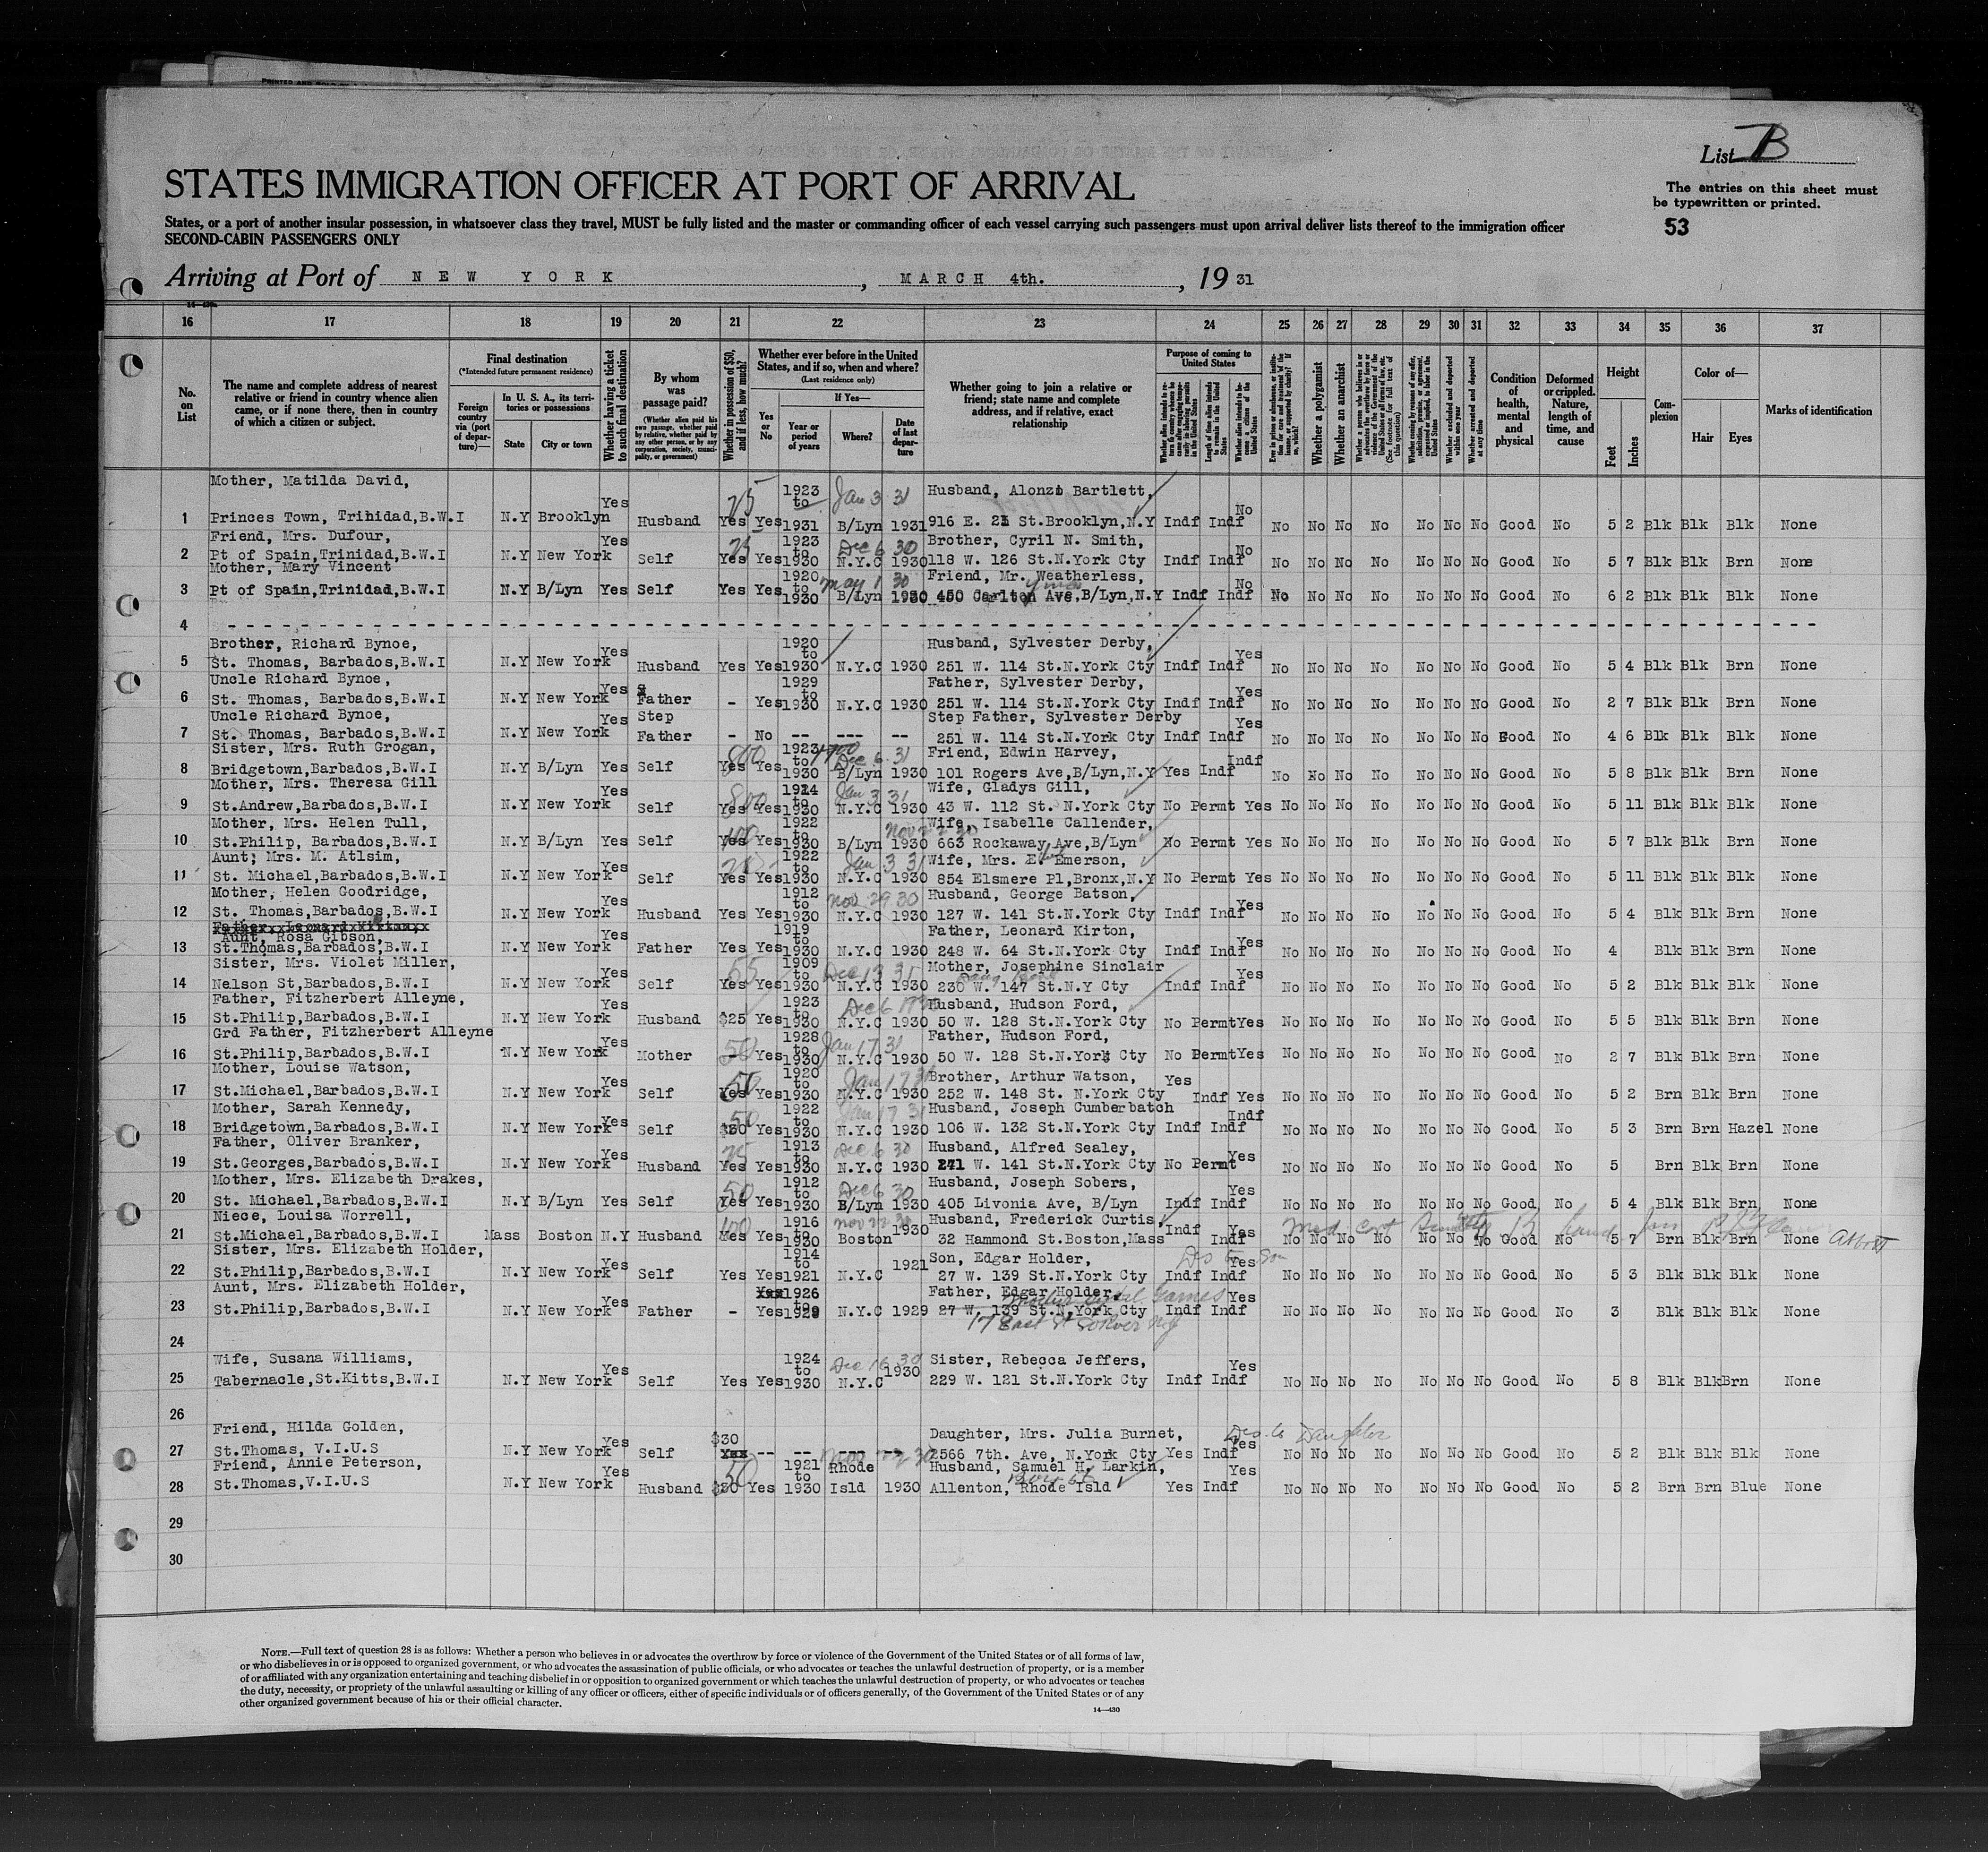 List B
STATES IMMIGRATION OFFICER AT PORT OF ARRIVAL
The entries on this sheet must
be typewritten or printed.
States, or a port of another insular possession, in whatsoever class they travel, MUST be fully listed and the master or commanding officer of each vessel carrying such passengers must upon arrival deliver lists thereof to the immigration officer
SECOND-CABIN PASSENGERS ONLY
53
Arriving at Port of NEW YORK, MARCH 4th., 1931
16 17 18 19 20 21 22 23 24 25 26 27 28 29 30 31 32 33 34 35 36 37
No. on List
The name and complete address of nearest relative or friend in country whence alien came, or if none there, then in country of which a citizen or subject.
Final destination
(*Intended future permanent residence)
Foreign country via (port of departure)—
In U. S. A., its territories or possessions
State
City or town
Whether having a ticket to such final destination
By whom was passage paid?
(Whether alien paid his own passage, whether paid by relative, whether paid by any other person, or by any corporation, society, municipality, or government)
Whether in possession of $50, and if less, how much?
Whether ever before in the United States, and if so, when and where?
(Last residence only)
Yes or No
If Yes—
Year or period of years
Where?
Date of last departure
Whether going to join a relative or friend; state name and complete address, and if relative, exact relationship
Purpose of coming to United States
Whether a polygamist
Whether an anarchist
Condition of health, mental and physical
Deformed or crippled. Nature, length of time, and cause
Height
Feet
Inches
Complexion
Color of—
Hair
Eyes
Marks of identification
Mother, Matilda David, Yes 25 1923 to Jan 3 31 Husband, Alonzo Bartlett, No
1 Princes Town, Trinidad,B.W.I N.Y Brooklyn Husband Yes Yes 1931 B/Lyn 1931 916 E. St.Brooklyn,N.Y Indf Indf No No No No No No No Good No 5 2 Blk Blk Blk None
Friend, Mrs. Dufour, Yes 1923 to Dec 6 30 Brother, Cyril N. Smith, No
2 Pt of Spain,Trinidad,B.W.I N.Y New York Self 25 Yes Yes 1930 N.Y.C 1930 118 W. 126 St.N.York Cty Indf Indf No No No No No No No Good No 5 7 Blk Blk Brn None
Mother, Mary Vincent 1920 to May 1 30 Friend, Mr. Weatherless, No
3 Pt of Spain,Trinidad,B.W.I N.Y B/Lyn Yes Self Yes Yes 1930 B/Lyn 1930 450 Carlton Ave,B/Lyn,N.Y Indf Indf No No No No No No No Good No 6 2 Blk Blk Blk None
4
Brother, Richard Bynoe, Yes 1920 to Husband, Sylvester Derby, Yes
5 St. Thomas, Barbados,B.W.I N.Y New York Husband Yes Yes 1930 N.Y.C 1930 251 W. 114 St.N.York Cty Indf Indf No No No No No No No Good No 5 4 Blk Blk Brn None
Uncle Richard Bynoe, Yes 1929 to Father, Sylvester Derby, Yes
6 St. Thomas, Barbados,B.W.I N.Y New York Father - Yes 1930 N.Y.C 1930 251 W. 114 St.N.York Cty Indf Indf No No No No No No No Good No 2 7 Blk Blk Brn None
Uncle Richard Bynoe, Yes Step Step Father, Sylvester Derby Yes
7 St. Thomas, Barbados,B.W.I N.Y New York Father - No -- --- -- 251 W. 114 St.N.York Cty Indf Indf No No No No No No No Good No 4 6 Blk Blk Blk None
Sister, Mrs. Ruth Grogan, 800 1923 to Dec 6 31 Friend, Edwin Harvey, Indf
8 Bridgetown,Barbados,B.W.I N.Y B/Lyn Yes Self Yes Yes 1930 B/Lyn 1930 101 Rogers Ave,B/Lyn,N.Y Yes Indf No No No No No No No Good No 5 8 Blk Blk Brn None
Mother, Mrs. Theresa Gill Yes 800 to Jan 3 31 Wife, Gladys Gill,
9 St.Andrew,Barbados,B.W.I N.Y New York Self Yes Yes 1930 N.Y.C 1930 43 W. 112 St. N.York Cty No Permt Yes No No No No No No No Good No 5 11 Blk Blk Blk None
Mother, Mrs. Helen Tull, 100 1922 to Nov 22 30 Wife, Isabelle Callender,
10 St.Philip, Barbados,B.W.I N.Y B/Lyn Yes Self Yes Yes 1930 B/Lyn 1930 663 Rockaway Ave,B/Lyn No Permt Yes No No No No No No No Good No 5 7 Blk Blk Brn None
Aunt; Mrs. M. Atlsim, Yes 1922 to Jan 3 31 Wife, Mrs. E. Emerson,
11 St. Michael,Barbados,B.W.I N.Y New York Self Yes Yes 1930 N.Y.C 1930 854 Elsmere Pl,Bronx,N.Y No Permt Yes No No No No No No No Good No 5 11 Blk Blk Blk None
Mother, Helen Goodridge, Yes 1912 to Nov 29 30 Husband, George Batson, Yes
12 St. Thomas,Barbados,B.W.I N.Y New York Husband Yes Yes 1930 N.Y.C 1930 127 W. 141 St.N.York Cty Indf Indf No No No No No No No Good No 5 4 Blk Blk Brn None
Aunt, Rosa Gibson, Yes 1919 to Father, Leonard Kirton, Yes
13 St.Thomas,Barbados,B.W.I N.Y New York Father Yes Yes 1930 N.Y.C 1930 248 W. 64 St.N.York Cty Indf Indf No No No No No No No Good No 4 Blk Blk Brn None
Sister, Mrs. Violet Miller, Yes 55 1909 to Dec 13 Mother, Josephine Sinclair Yes
14 Nelson St,Barbados,B.W.I N.Y New York Self Yes Yes 1930 N.Y.C 1930 230 W. 147 St.N.Y Cty Indf Indf No No No No No No No Good No 5 2 Blk Blk Blk None
Father, Fitzherbert Alleyne, Yes 1923 to Dec 6 Husband, Hudson Ford,
15 St.Philip,Barbados,B.W.I N.Y New York Husband $25 Yes 1930 N.Y.C 1930 50 W. 128 St.N.York Cty No Permt Yes No No No No No No No Good No 5 5 Blk Blk Brn None
Grd Father, Fitzherbert Alleyne Yes 50 1928 to Jan 17 31 Father, Hudson Ford,
16 St.Philip,Barbados,B.W.I N.Y New York Mother - Yes 1930 N.Y.C 1930 50 W. 128 St.N.York Cty No Permt Yes No No No No No No No Good No 2 7 Blk Blk Brn None
Mother, Louise Watson, Yes 50 1920 to Jan 17 31 Brother, Arthur Watson, Yes
17 St.Michael,Barbados,B.W.I N.Y New York Self Yes Yes 1930 N.Y.C 1930 252 W. 148 St. N.York Cty Indf Yes No No No No No No No Good No 5 2 Brn Blk Brn None
Mother, Sarah Kennedy, Yes 50 1922 to Jan 17 31 Husband, Joseph Cumberbatch Indf
18 Bridgetown,Barbados,B.W.I N.Y New York Self $30 Yes 1930 N.Y.C 1930 106 W. 132 St.N.York Cty Indf Indf No No No No No No No Good No 5 3 Brn Brn Hazel None
Father, Oliver Branker, Yes 25 1913 to Dec 6 30 Husband, Alfred Sealey, Yes
19 St.Georges,Barbados,B.W.I N.Y New York Husband Yes Yes 1930 N.Y.C 1930 W. 141 St.N.York Cty No Permt No No No No No No No Good No 5 Brn Blk Brn None
Mother, Mrs. Elizabeth Drakes, 50 1912 to Dec 6 30 Husband, Joseph Sobers, Yes
20 St. Michael,Barbados,B.W.I N.Y B/Lyn Yes Self Yes Yes 1930 B/Lyn 1930 405 Livonia Ave, B/Lyn Indf Indf No No No No No No No Good No 5 4 Blk Blk Brn None
Niece, Louisa Worrell, 100 1916 to Nov 22 30 1930 Husband, Frederick Curtis, Indf Yes
21 St.Michael,Barbados,B.W.I Mass Boston N.Y Husband Yes Yes 1930 Boston 32 Hammond St.Boston,Mass Indf No No No No No No No Good No 5 7 Brn Blk Brn None
Sister, Mrs. Elizabeth Holder, Yes 1914 to 1921 Son, Edgar Holder, Yes
22 St.Philip,Barbados,B.W.I N.Y New York Self Yes Yes 1921 N.Y.C 27 W. 139 St.N.York Cty Indf Indf No No No No No No No Good No 5 3 Blk Blk Blk None
Aunt, Mrs. Elizabeth Holder, Yes 1926 to Father, Edgar Holder, Yes
23 St.Philip,Barbados,B.W.I N.Y New York Father - Yes 1929 N.Y.C 1929 27 W. 139 St.N.York Cty Indf Indf No No No No No No No Good No 3 Blk Blk Blk None
24
Wife, Susana Williams, Yes 1924 to Dec 16 30 1930 Sister, Rebecca Jeffers, Yes
25 Tabernacle,St.Kitts,B.W.I N.Y New York Self Yes Yes 1930 N.Y.C 229 W. 121 St.N.York Cty Indf Indf No No No No No No No Good No 5 8 Blk Blk Brn None
26
Friend, Hilda Golden, Yes $30 Daughter, Mrs. Julia Burnet, Yes
27 St.Thomas, V.I.U.S N.Y New York Self -- -- --- -- 2566 7th. Ave, N.York Cty Yes Indf No No No No No No No Good No 5 2 Blk Blk Blk None
Friend, Annie Peterson, Yes 50 1921 to Rhode Husband, Samuel H. Larkin, Yes
28 St.Thomas,V.I.U.S N.Y New York Husband $30 Yes 1930 Isld 1930 Allenton, Rhode Isld Yes Indf No No No No No No No Good No 5 2 Brn Brn Blue None
29
30
NOTE.—Full text of question 28 is as follows: Whether a person who believes in or advocates the overthrow by force or violence of the Government of the United States or of all forms of law,
or who disbelieves in or is opposed to organized government, or who advocates the assassination of public officials, or who advocates or teaches the unlawful destruction of property, or is a member
of or affiliated with any organization entertaining and teaching disbelief in or opposition to organized government or which teaches the unlawful destruction of property, or who advocates or teaches
the duty, necessity, or propriety of the unlawful assaulting or killing of any officer or officers, either of specific individuals or of officers generally, of the Government of the United States or of any
other organized government because of his or their official character.
14—430